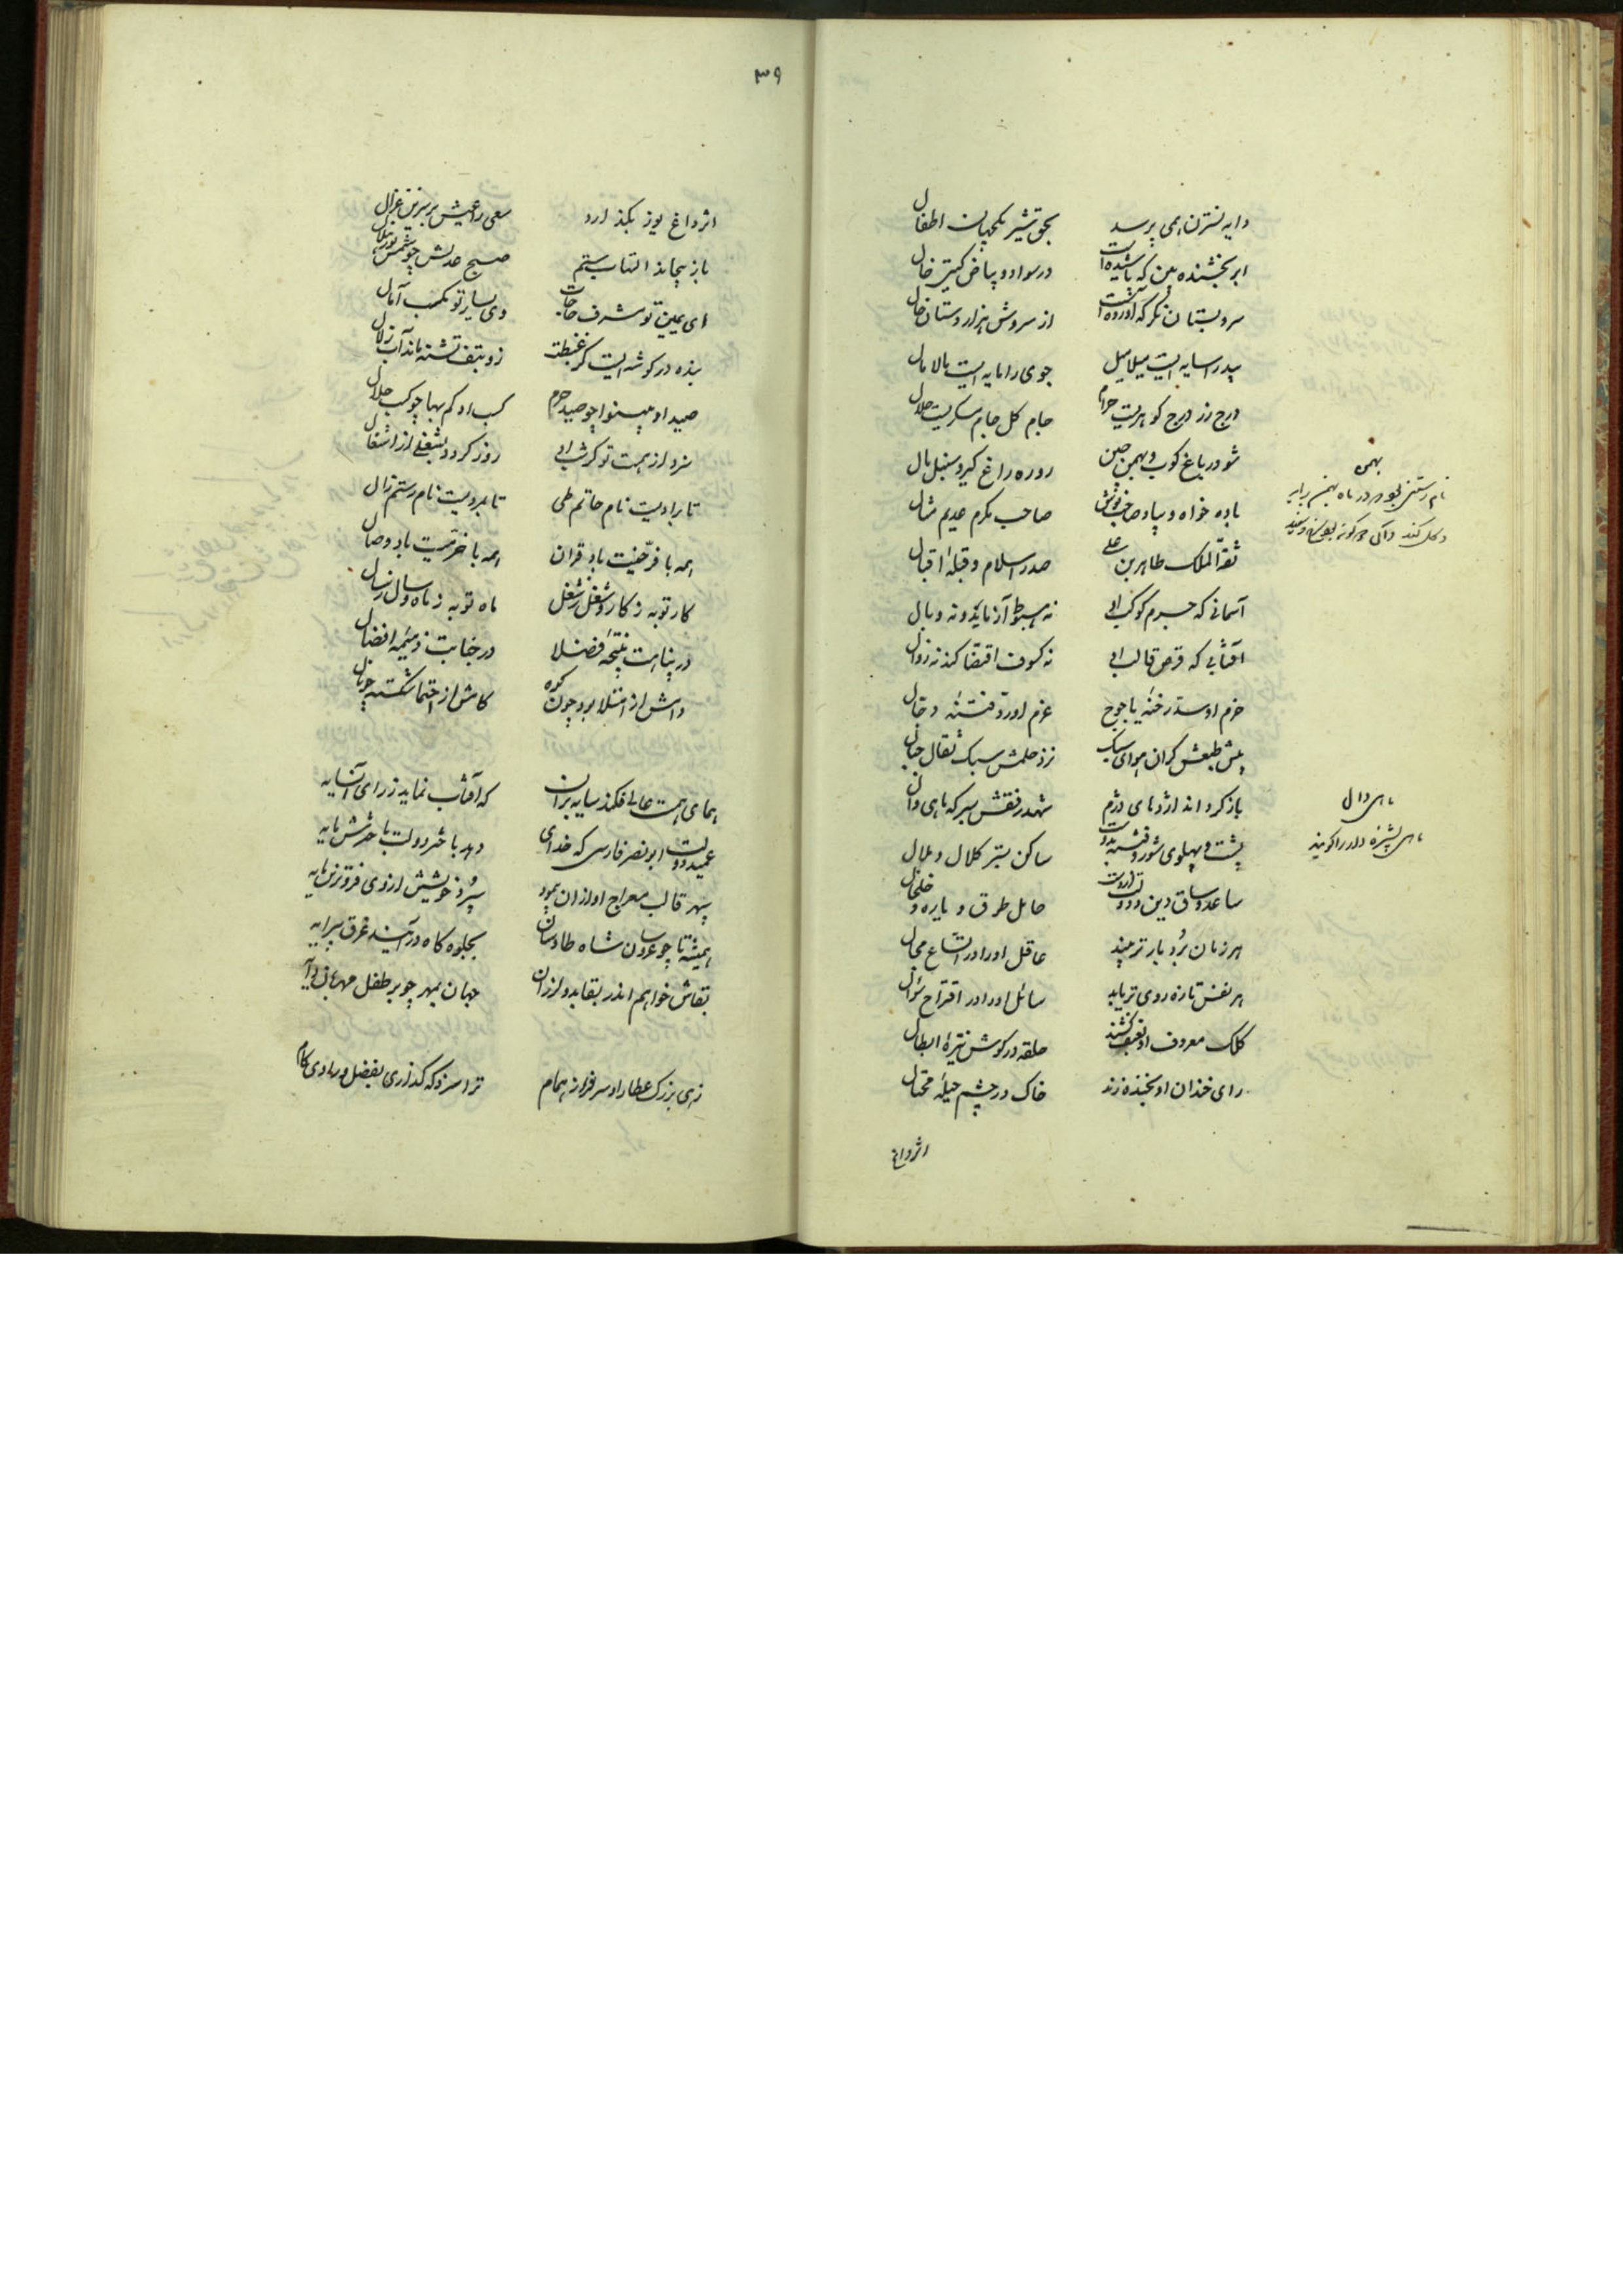 دایه نسترن همی پرسد بحق شیر یکجهان اطفال
ابر بخشنده بین که پاشیده است در سواد و بیاض گیتی خال
سرو بستان نگر که آورده است از سروش هزار دستان فال
بید را سایه ایست میلامیل جوی را مایه ایست مالامال
درج زر درج گوهریست حرام جام گل جام سکریست حلال
شو در باغ کوب و بهمن چین روره راغ گیر و سنبل مال
باده خواه و بیاد صاحب نوش صاحب مکرم عدیم مثال
ثقة الملک طاهر بن علی صدر اسلام و قبلهٔ اقبال
آسمانی که جرم کوکب او نه هبوط آزماید و نه وبال
آفتابی که قرص قالب او نه کسوف اقتضا کند نه زوال
حزم او سد رخنهٔ یاجوج عزم او رد فتنهٔ دجال
پیش طبعش گران هوای سبک نزد حلمش سبک ثقال جبال
باز کرد اند اژدهای دژم شهد رفقش بسرکه ماهی وال
پشت و پهلوی شور و فتنه بدوست ساکن بستر کلال و ملال
ساعد و ساق دین و دولت ازوست حامل طوق و یاره و خلخال
هر زمان بردبارتر بیند عاقل او را در اتساع مجال
هر نفس تازه روی تر یابد سائل او را در اقتراح سؤال
کلک معروف او بعنف کشد حلقه در گوش نیزهٔ ابطال
رای خندان او بخنده زند خاک در چشم حیلهٔ محتال
اژداغ
بهمن
نام رستنی بود و در ماه بهمن
ماهی وال
ماهی پشیزه دار را گویند
۳۹
اثر داغ یوز بگذارد سعی راعیش بر سرین غزال
باز پیچاند التهاب ستم صبح عدلش چو شمس نور ظلال
ای یمین تو مشرف حاجات وی یسار تو مکسب آمال
بنده در گوشه ایست کز غبطت زو بتف تشنه ماند آب زلال
صید او بینوا چو صید حرم کسب او کم بها چو کسب حلال
سزد از همت تو گر شب او روز گردد بشغلی از اشغال
تا برادیست نام حاتم طی تا بمردیست نام رستم زال
همه با فرخیت باد قران همه با خرمیت باد وصال
کار تو به ز کار و شغل ز شغل ماه تو به ز ماه و سال ز سال
در پناهت نتیجهٔ فضلا در جنابت ذمیمه افضال
داش از امتلا بود چون کوه کامش از احتما شکسته چو نال
همای همت عالی فکند سایه بر آن که آفتاب نماید ز رای آن سایه
عمید دولت ابونصر فارسی که خدای دهد باختر دولت ز اخترش مایه
سپهر قالب معراج او از آن پیمود سپرد خویشش از وی فروترین پایه
همیشه تا چو عروسان شاه طاوسان بجلوه گاه در آیند غرق پیرایه
بقاش خواهم اندر بقا بدو لرزان جهان بمهر چو بر طفل مهربان دایه
زهی بزرگ عطا راد سرفراز همام ترا سزد که گذاری بفضل و رادی کام